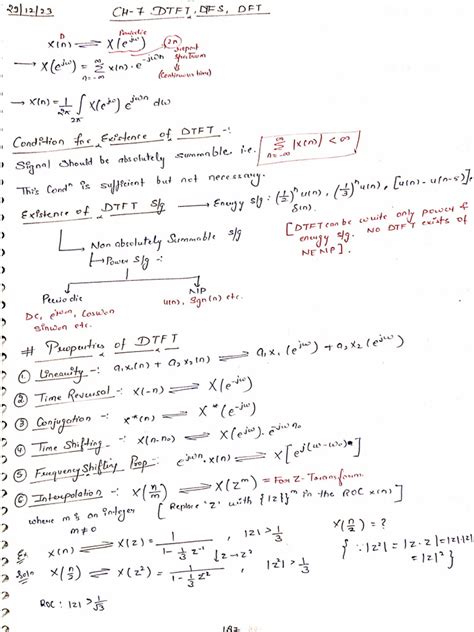 29/12/23
CH-7 DTFT, DFS, DFT
Periodic
x(n) ⇌ X(e^jω) (2π) repeat Spectrum
→ X(e^jω) = Σ_{n=-∞}^{∞} x(n)·e^-jωn (Continuous time)
→ x(n) = 1/2π ∫_{2π} X(e^jω) e^jωn dω
Condition for Existence of DTFT -:
Signal Should be absolutely summable i.e. [Σ_{n=-∞}^{∞} |x(n)| < ∞]
This Cond^n is sufficient but not necessary.
Existence of DTFT s/g → Energy s/g : (1/2)^n u(n), (-1/3)^n u(n), [u(n) - u(n-5)]
δ(n).
[DTFT can be write only power & energy s/g. No DTFT exists of NENP].
Non absolutely Summable s/g
→ Power s/g -:
Periodic NP
DC, e^jω₀n, Cosω₀n u(n), Sgn(n) etc.
Sinω₀n etc.
# Properties of DTFT
① Linearity -: a₁x₁(n) + a₂x₂(n) ⇌ a₁X₁(e^jω) + a₂X₂(e^jω)
② Time Reversal -: x(-n) ⇌ X(e^-jω)
③ Conjugation -: x*(n) ⇌ X*(e^-jω)
④ Time Shifting -: x(n-n₀) ⇌ X(e^jω)·e^-jωn₀
⑤ Frequency Shifting Prop -: e^jω₀n·x(n) ⇌ X[e^j(ω-ω₀)]
⑥ Interpolation -: x(n/m) ⇌ X(z^m) = For Z-Transform
where m is an integer [Replace 'z' with {|z|}^m in the ROC x(n)]
m≠0
Ex x(n) ⇌ X(z) = 1/(1 - 1/3 z^-1) , |z| > 1/3 x(n/2) = ?
↓ z→z²
Soln x(n/2) ⇌ X(z²) = 1/(1 - 1/3 z^-2) , |z²| > 1/3 {∵ |z²| = |z·z| = |z|·|z| = |z|²}
ROC: |z| > 1/√3
187